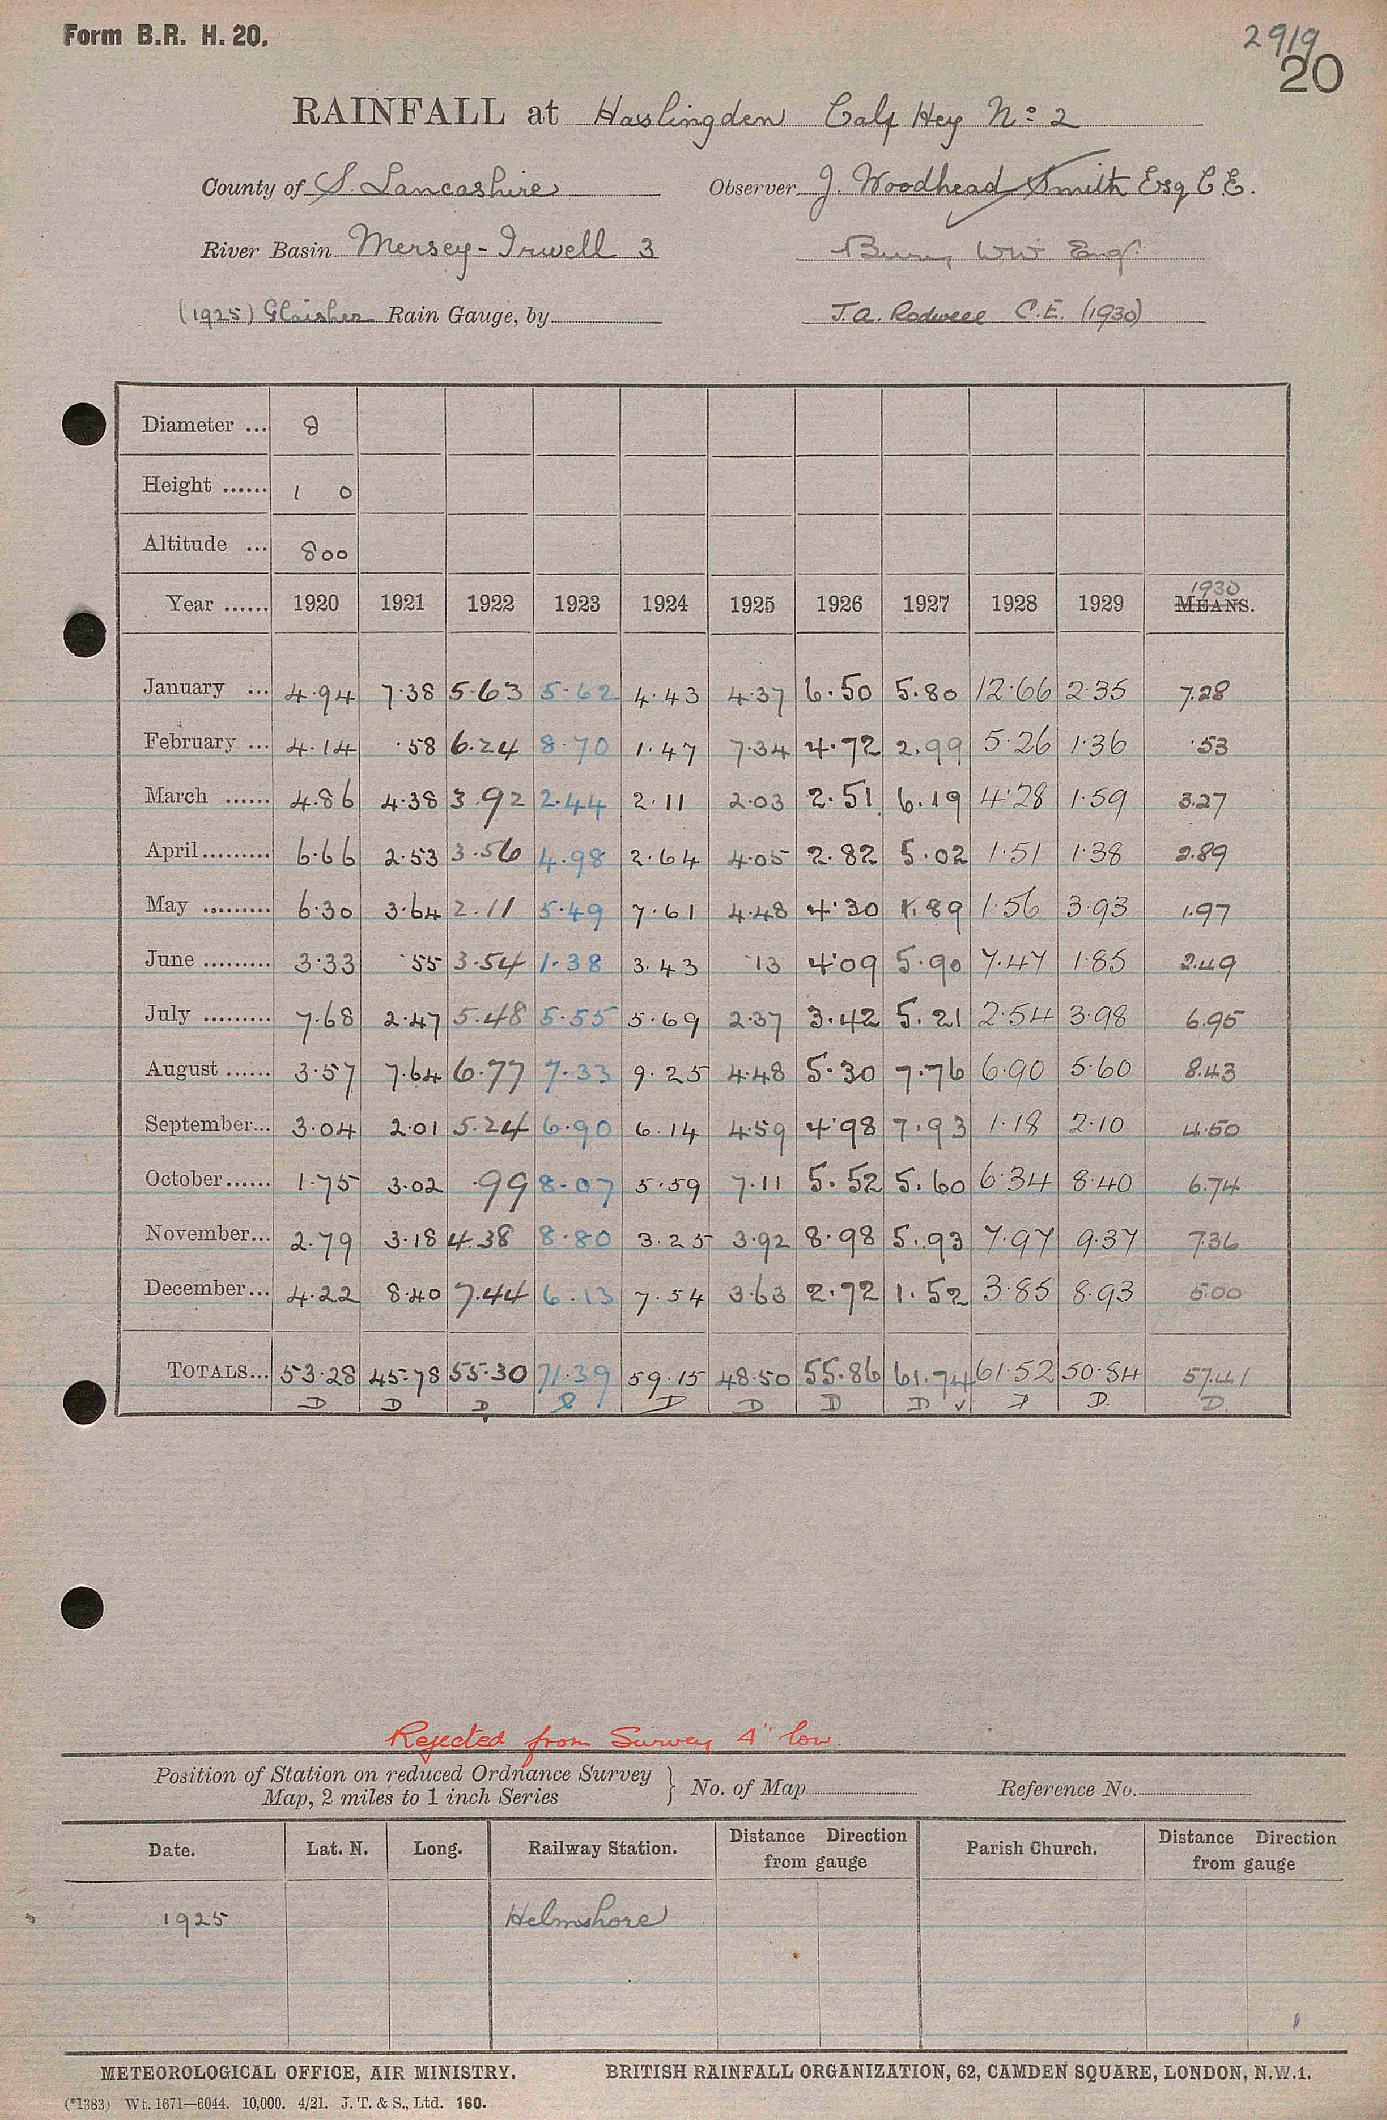 Form B.R. H. 20.
2919
20
RAINFALL at Haslingden Calf Hey No. 2
County of S. Lancashire Observer J. Woodhead Smith Esq C.E.
River Basin Mersey-Irwell 3 Bury WW Eng.
(1925) Glaisher Rain Gauge, by J.A. Rodwell C.E. (1930)
Diameter ... 8
Height ...... 1 0
Altitude ... 800
1930
Year ...... 1920 1921 1922 1923 1924 1925 1926 1927 1928 1929 MEANS.
January ... 4.94 7.38 5.63 5.62 4.43 4.37 6.50 5.80 12.66 2.35 7.28
February ... 4.14 .58 6.24 8.70 1.47 7.34 4.72 2.99 5.26 1.36 .53
March ...... 4.86 4.38 3.92 2.44 2.11 2.03 2.51 6.19 4.28 1.59 3.27
April......... 6.66 2.53 3.56 4.98 2.64 4.05 2.82 5.02 1.51 1.38 2.89
May ......... 6.30 3.64 2.11 5.49 7.61 4.48 4.30 1.89 1.56 3.93 1.97
June ......... 3.33 .55 3.54 1.38 3.43 .13 4.09 5.90 7.47 1.85 2.49
July ......... 7.68 2.47 5.48 5.55 5.69 2.37 3.42 5.21 2.54 3.98 6.95
August ...... 3.57 7.64 6.77 7.33 9.25 4.48 5.30 7.76 6.90 5.60 8.43
September... 3.04 2.01 5.24 6.90 6.14 4.59 4.98 7.93 1.18 2.10 4.50
October...... 1.75 3.02 .99 8.07 5.59 7.11 5.52 5.60 6.34 8.40 6.74
November... 2.79 3.18 4.38 8.80 3.25 3.92 8.98 5.93 7.97 9.37 7.36
December... 4.22 8.40 7.44 6.13 7.54 3.63 2.72 1.52 3.85 8.93 5.00
TOTALS... 53.28 45.78 55.30 71.39 59.15 48.50 55.86 61.74 61.52 50.84 57.41
D D D D D D D D D. D.
Rejected from Survey 4" low.
Position of Station on reduced Ordnance Survey } No. of Map Reference No.
Map, 2 miles to 1 inch Series
Date. Lat. N. Long. Railway Station. Distance Direction from gauge Parish Church. Distance Direction from gauge
1925 Helmshore
METEOROLOGICAL OFFICE, AIR MINISTRY. BRITISH RAINFALL ORGANIZATION, 62, CAMDEN SQUARE, LONDON, N.W.1.
(*1383) Wt. 1671—6044. 10,000. 4/21. J. T. & S., Ltd. 160.